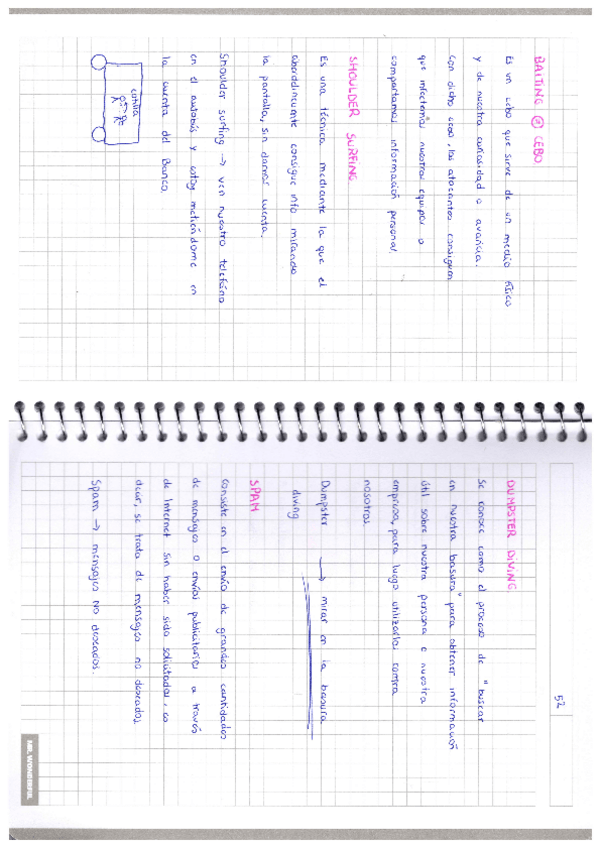 BAITING o CEBO.
Es un cebo que sirve de un medio físico
y de nuestra curiosidad o avaricia.
Con dicho cebo, los atacantes consiguen
que infectemos nuestros equipos o
compartamos información personal.
SHOULDER SURFING.
Es una técnica mediante la que el
ciberdelincuente consigue info mirando
la pantalla, sin darnos cuenta.
Shoulder surfing → ven nuestro teléfono
en el autobús y estoy metiéndome en
la cuenta del Banco.
cotilla
52
DUMPSTER DIVING.
Se conoce como el proceso de "buscar
en nuestra basura" para obtener información
útil sobre nuestra persona o nuestra
empresa, para luego utilizarla contra
nosotros.
Dumpster → mirar en la basura
diving
SPAM
Consiste en el envío de grandes cantidades
de mensajes o envíos publicitarios a través
de Internet sin haber sido solicitados, es
decir, se trata de mensajes no deseados.
Spam → mensajes no deseados.
MR. WONDERFUL